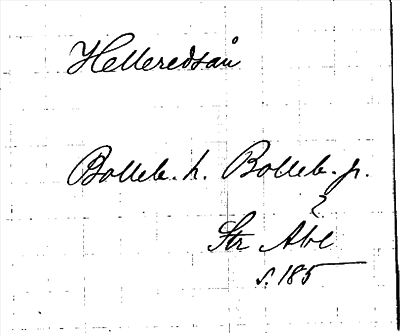 Helleredsån
Bolleb. h. Bolleb. p.
Str Abl
s. 185